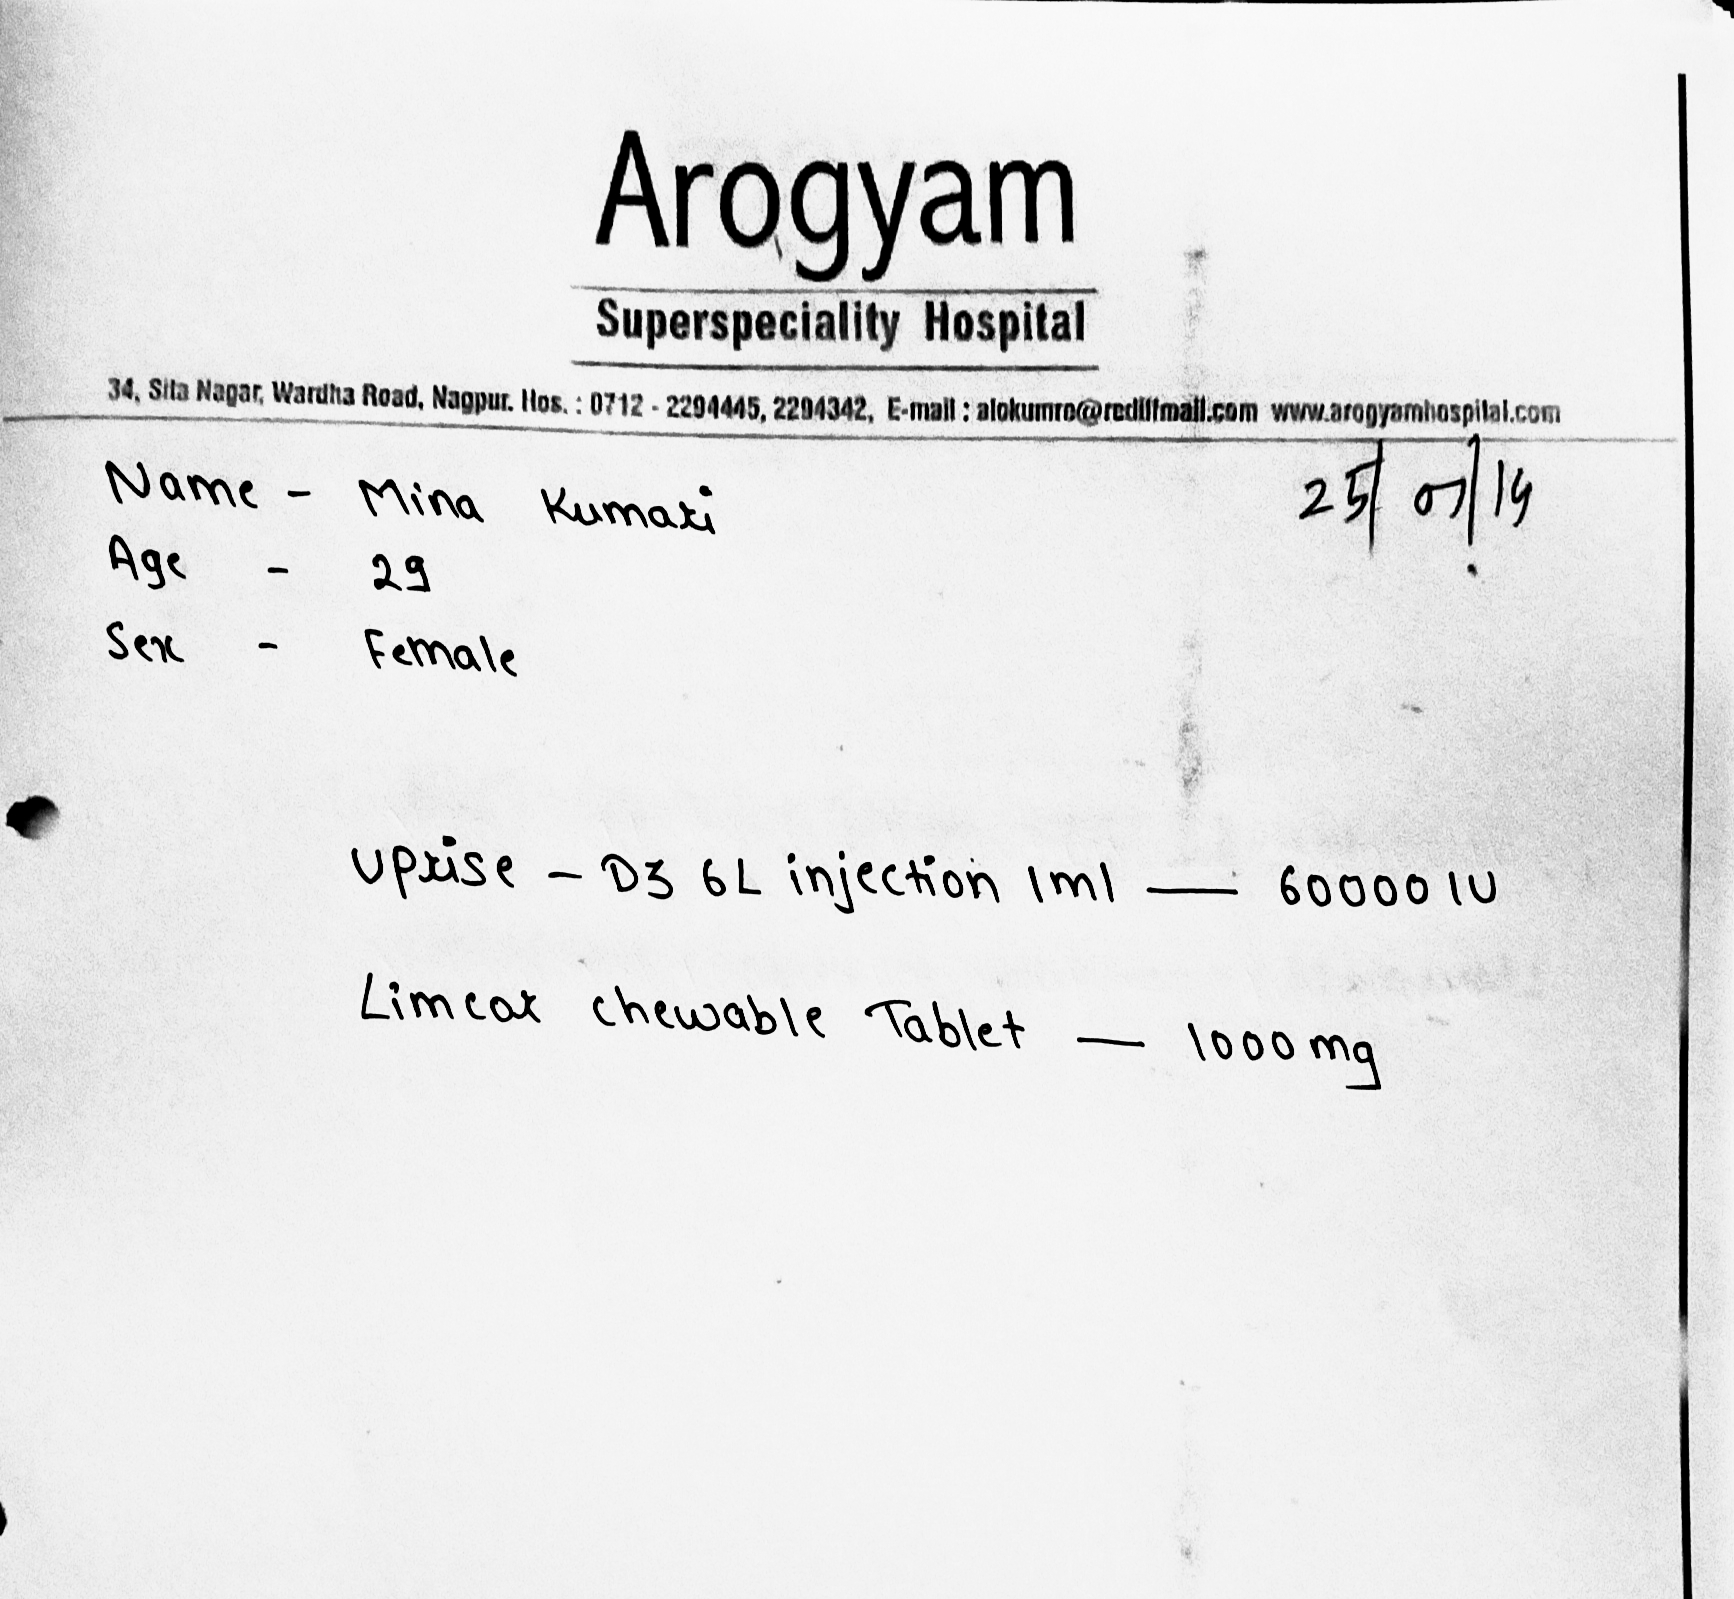 Arogyam
Superspeciality Hospital
34, Sita Nagar, Wardha Road, Nagpur. Hos. : 0712 - 2294445, 2294342, E-mail : alokumro@rediffmail.com www.arogyamhospital.com
Name - Mina Kumari
25/07/14
Age - 29
Sex - Female
Uprise - D3 6L injection 1ml — 60000 IU
Limcor chewable Tablet — 1000 mg